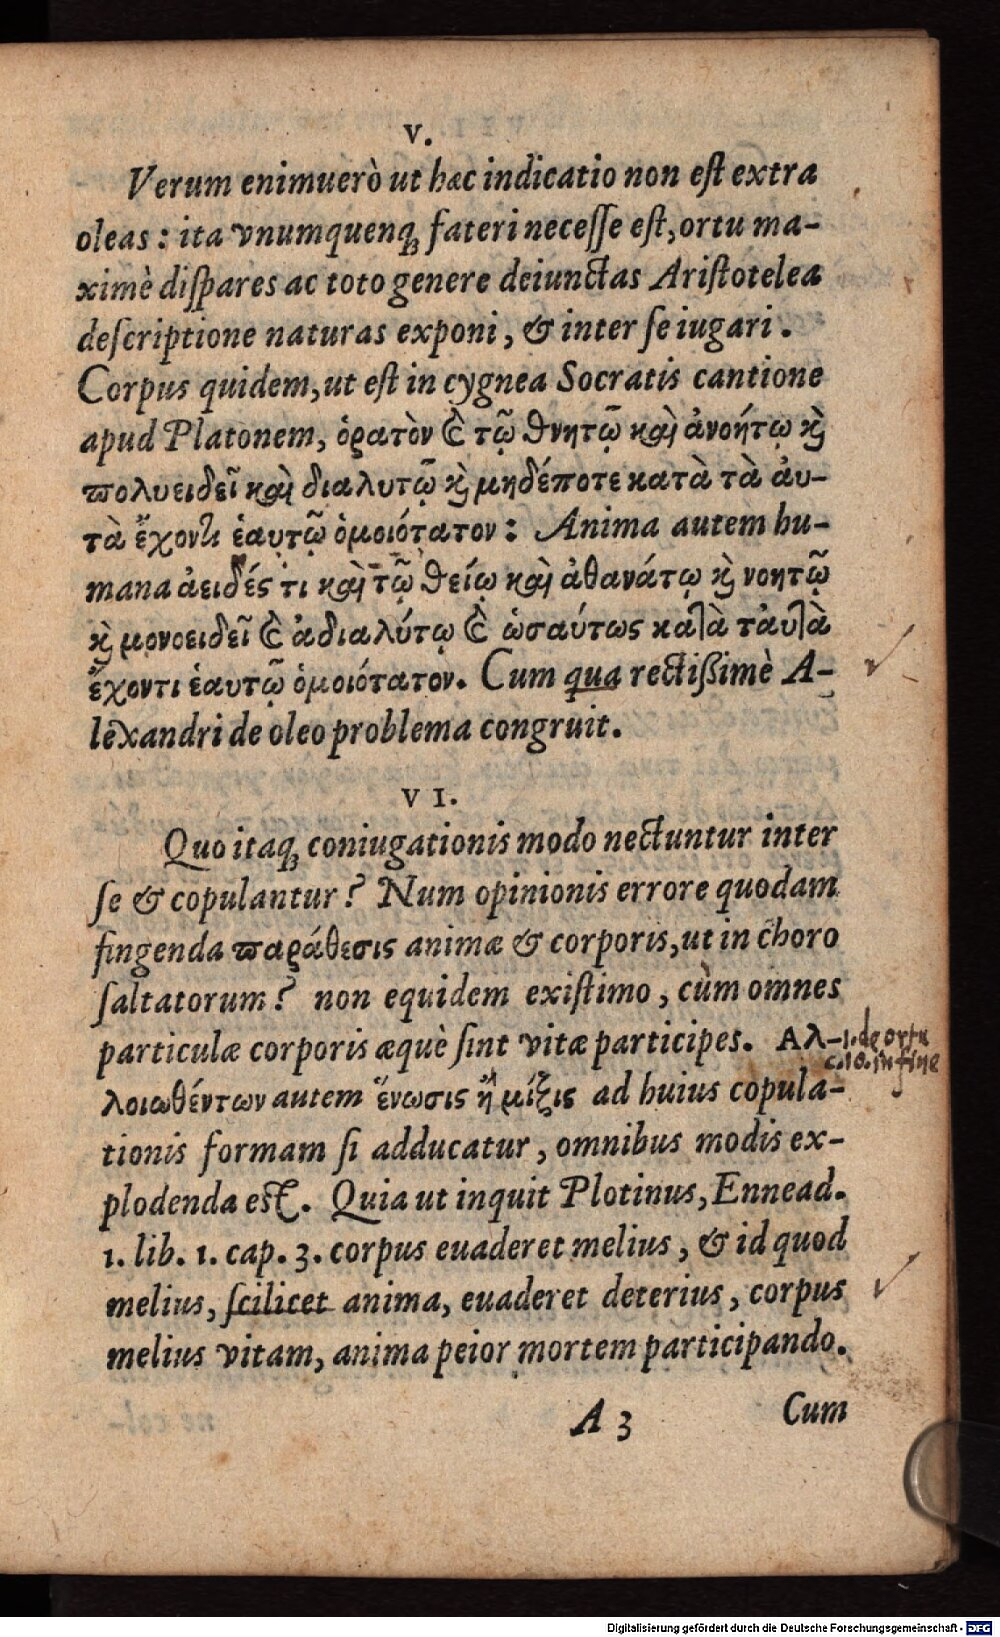 V.
Verum enimuerò ut hæc indicatio non est extra
oleas: ita vnumquenq; fateri necesse est, ortu ma-
ximè dispares ac toto genere deiunctas Aristotelea
descriptione naturas exponi, & inter se iugari.
Corpus quidem, ut est in cygnea Socratis cantione
apud Platonem, ὁρατὸν ϗ τῷ θνητῷ καὶ ἀνοήτῳ ϗ
πολυειδεῖ καὶ διαλυτῷ ϗ μηδέποτε κατὰ τὰ ἀυ-
τὰ ἔχοντι ἑαυτῷ ὁμοιότατον: Anima autem hu-
mana ἀειδές τι καὶ τῷ θείῳ καὶ ἀθανάτῳ ϗ νοητῷ
ϗ μονοειδεῖ ϗ ἀδιαλύτῳ ϗ ὡσαύτως κατὰ τἀυτὰ
ἔχοντι ἑαυτῷ ὁμοιότατον. Cum qua rectißimè A-
lexandri de oleo problema congruit.
VI.
Quo itaq; coniugationis modo nectuntur inter
se & copulantur? Num opinionis errore quodam
fingenda παράθεσις animæ & corporis, ut in choro
saltatorum? non equidem existimo, cùm omnes
particulæ corporis æquè sint vitæ participes. Αλ-
1. de ortu
c. 10. in fine
λοιωθέντων autem ἕνωσις ἢ μίξις ad huius copula-
tionis formam si adducatur, omnibus modis ex-
plodenda est. Quia ut inquit Plotinus, Ennead.
1. lib. 1. cap. 3. corpus euaderet melius, & id quod
melius, scilicet anima, euaderet deterius, corpus
melius vitam, anima peior mortem participando.
A 3 Cum
Digitalisierung gefördert durch die Deutsche Forschungsgemeinschaft - DFG